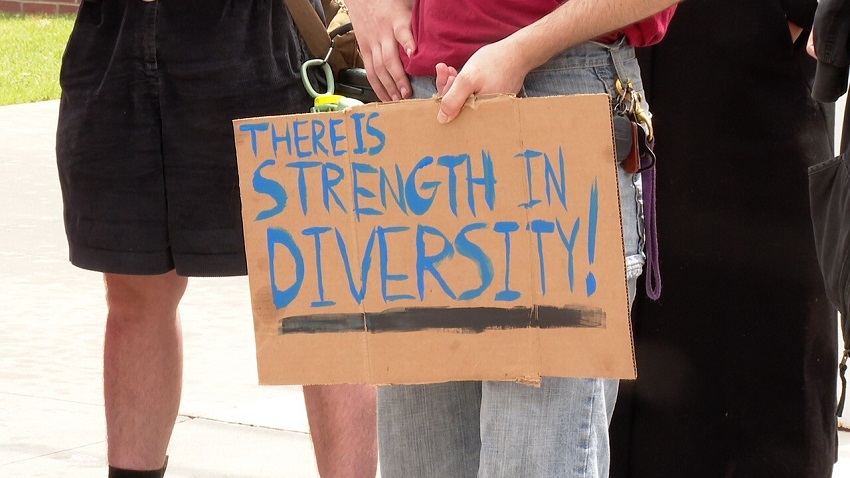 THERE IS
STRENGTH IN
DIVERSITY!